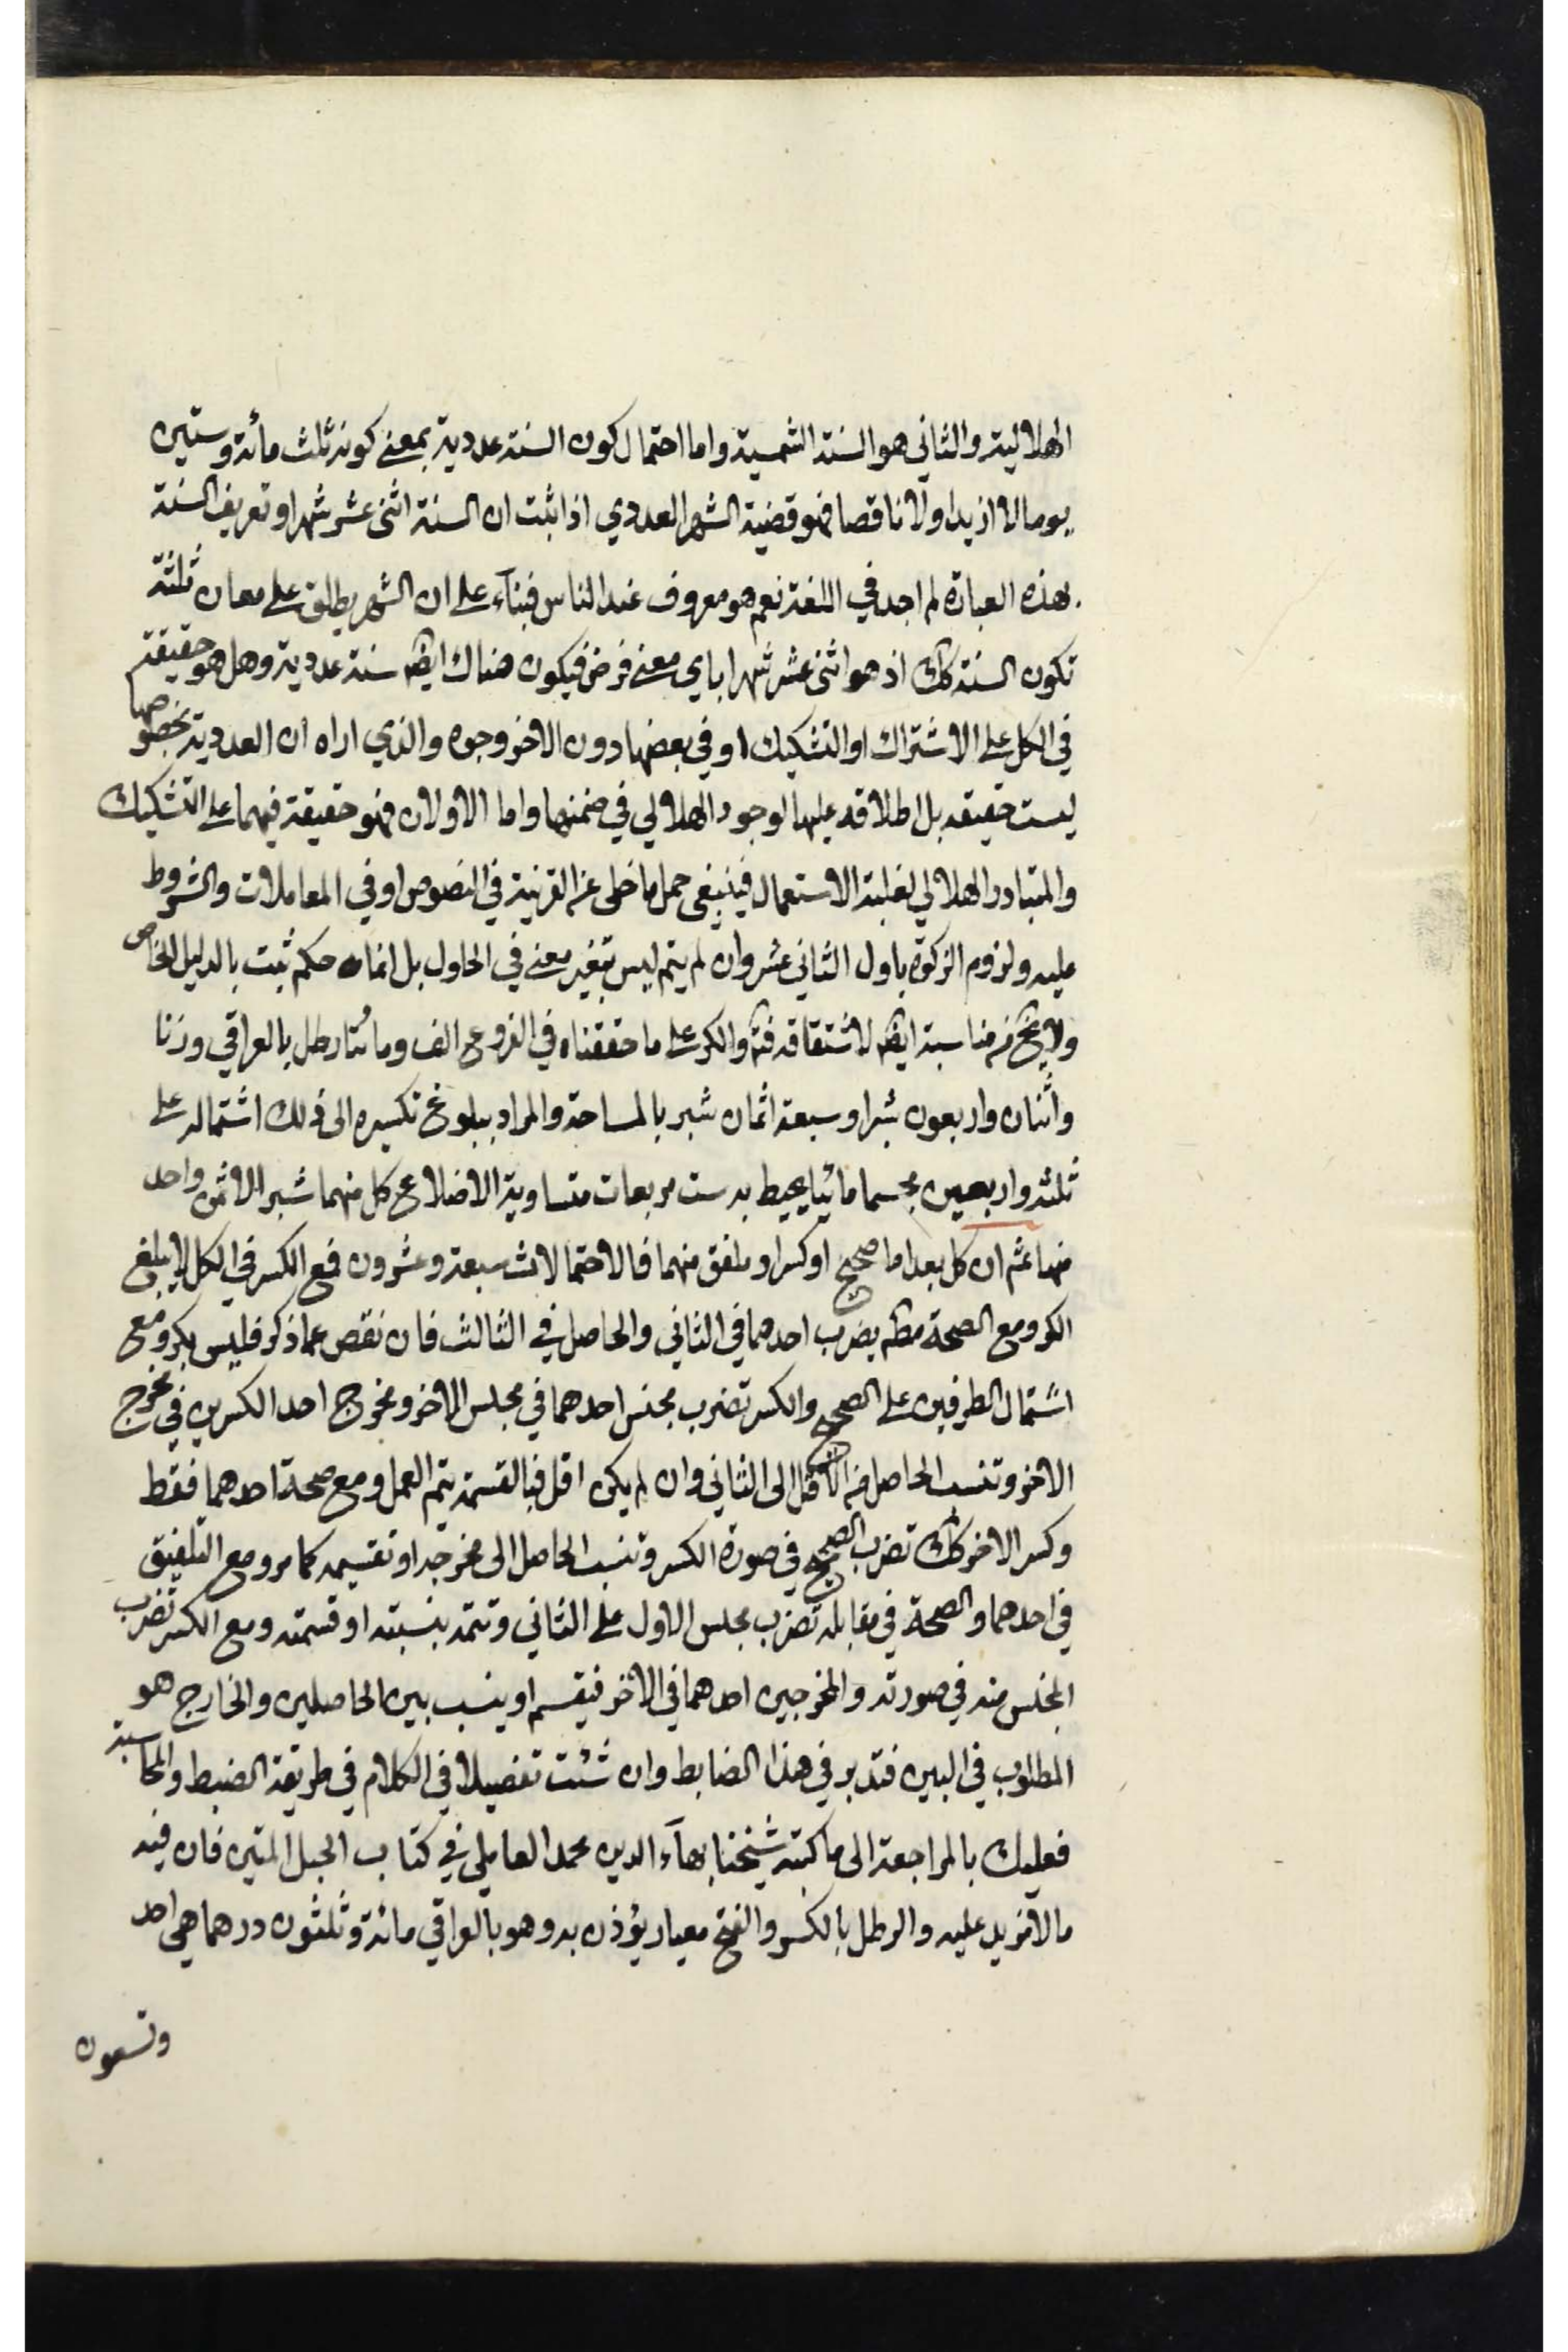 الهلالية والثاني هو السنة الشمسية واما احتمال كون السنة عددية بمعنى كونه ثلث مائة وستين
يوما لا ازيد ولا ناقصا فهو قضية الشهر العددي اذا ثبت ان السنة اثنى عشر شهرا وتعريف السنة
بهذه العبارة لم اجد في اللغة نعم هو معروف عند الناس فبناء على ان الشهر يطلق على معان ثلثة
تكون السنة كك اذ هو اثنى عشر شهرا باي معنى فرض فيكون هناك ايضه سنة عددية وهل هو حقيقة
في الكل على الاشتراك او التشكيك او في بعضها دون الاخر وجوه والذي اراه ان العددية بخصوصها
ليست حقيقه بل اطلاقه عليها لوجود الهلالي في ضمنها واما الاولان فهو حقيقة فيهما على التشكيك
والمتبادر الهلالي لغلبة الاستعمال فينبغي حمل ما خلى عن القرينة في النصوص او في المعاملات والشروط
عليه ولزوم الزكوة باول الثاني عشر وان لم يتم ليس بتغير معنى في الحاول بل انما حكم ثبت بالدليل الخاص
ولا يخ من مناسبة ايضه لاشتقاقه فته والكر على ما حققناه في الفروع الف ومائتا رطل بالعراقي وزنا
واثنان واربعون شبرا وسبعة اثمان شبر بالمساحة والمراد ببلوغ تكسيره الى ذلك اشتماله على
ثلثه واربعين مجسما مائيا يحيط به ست مربعات متساوية الاضلاع كل منهما شبر الا ثمن واحد
منها ثم ان كل بعد اما صحيح او كسر او ملفق منهما فالاحتمالات سبعة وعشرون فمع الكسر في الكل لا يبلغ
الكر ومع الصحة مطه يضرب احدهما في الثاني والحاصل في الثالث فان نقص عما ذكر فليس بكر ومع
اشتمال الطرفين على الصحيح والكسر تضرب مجنس احدهما في مجنس الاخر ومخرج احد الكسرين في مخرج
الاخر وتنسب الحاصل من الاقل الى الثاني وان لم يكن اقل فبالقسمة يتم العمل ومع صحة احدهما فقط
وكسر الاخر كك تضرب الصحيح في صورة الكسر وتنسب الحاصل الى مخرجه او تقسيمه كما مر ومع التلفيق
في احدهما والصحة في مقابله تضرب مجنس الاول على الثاني وتتمه بنسبته او قسمته ومع الكسر تضرب
المجنس منه في صورته والمخرجين احدهما في الاخر فيقسم او ينسب بين الحاصلين والخارج هو
المطلوب في البين فتدبر في هذا الضابط وان شئت تفصيلا في الكلام في طريقة الضبط والمحاسبة
فعليك بالمراجعة الى ما كتبه شيخنا بهاء الدين محمد العاملي في كتاب الحبل المتين فان فيه
ما لا مزيد عليه والرطل بالكسر والفتح معيار يوزن به وهو بالعراقي مائة وثلثون درهما هي احد
وتسعون